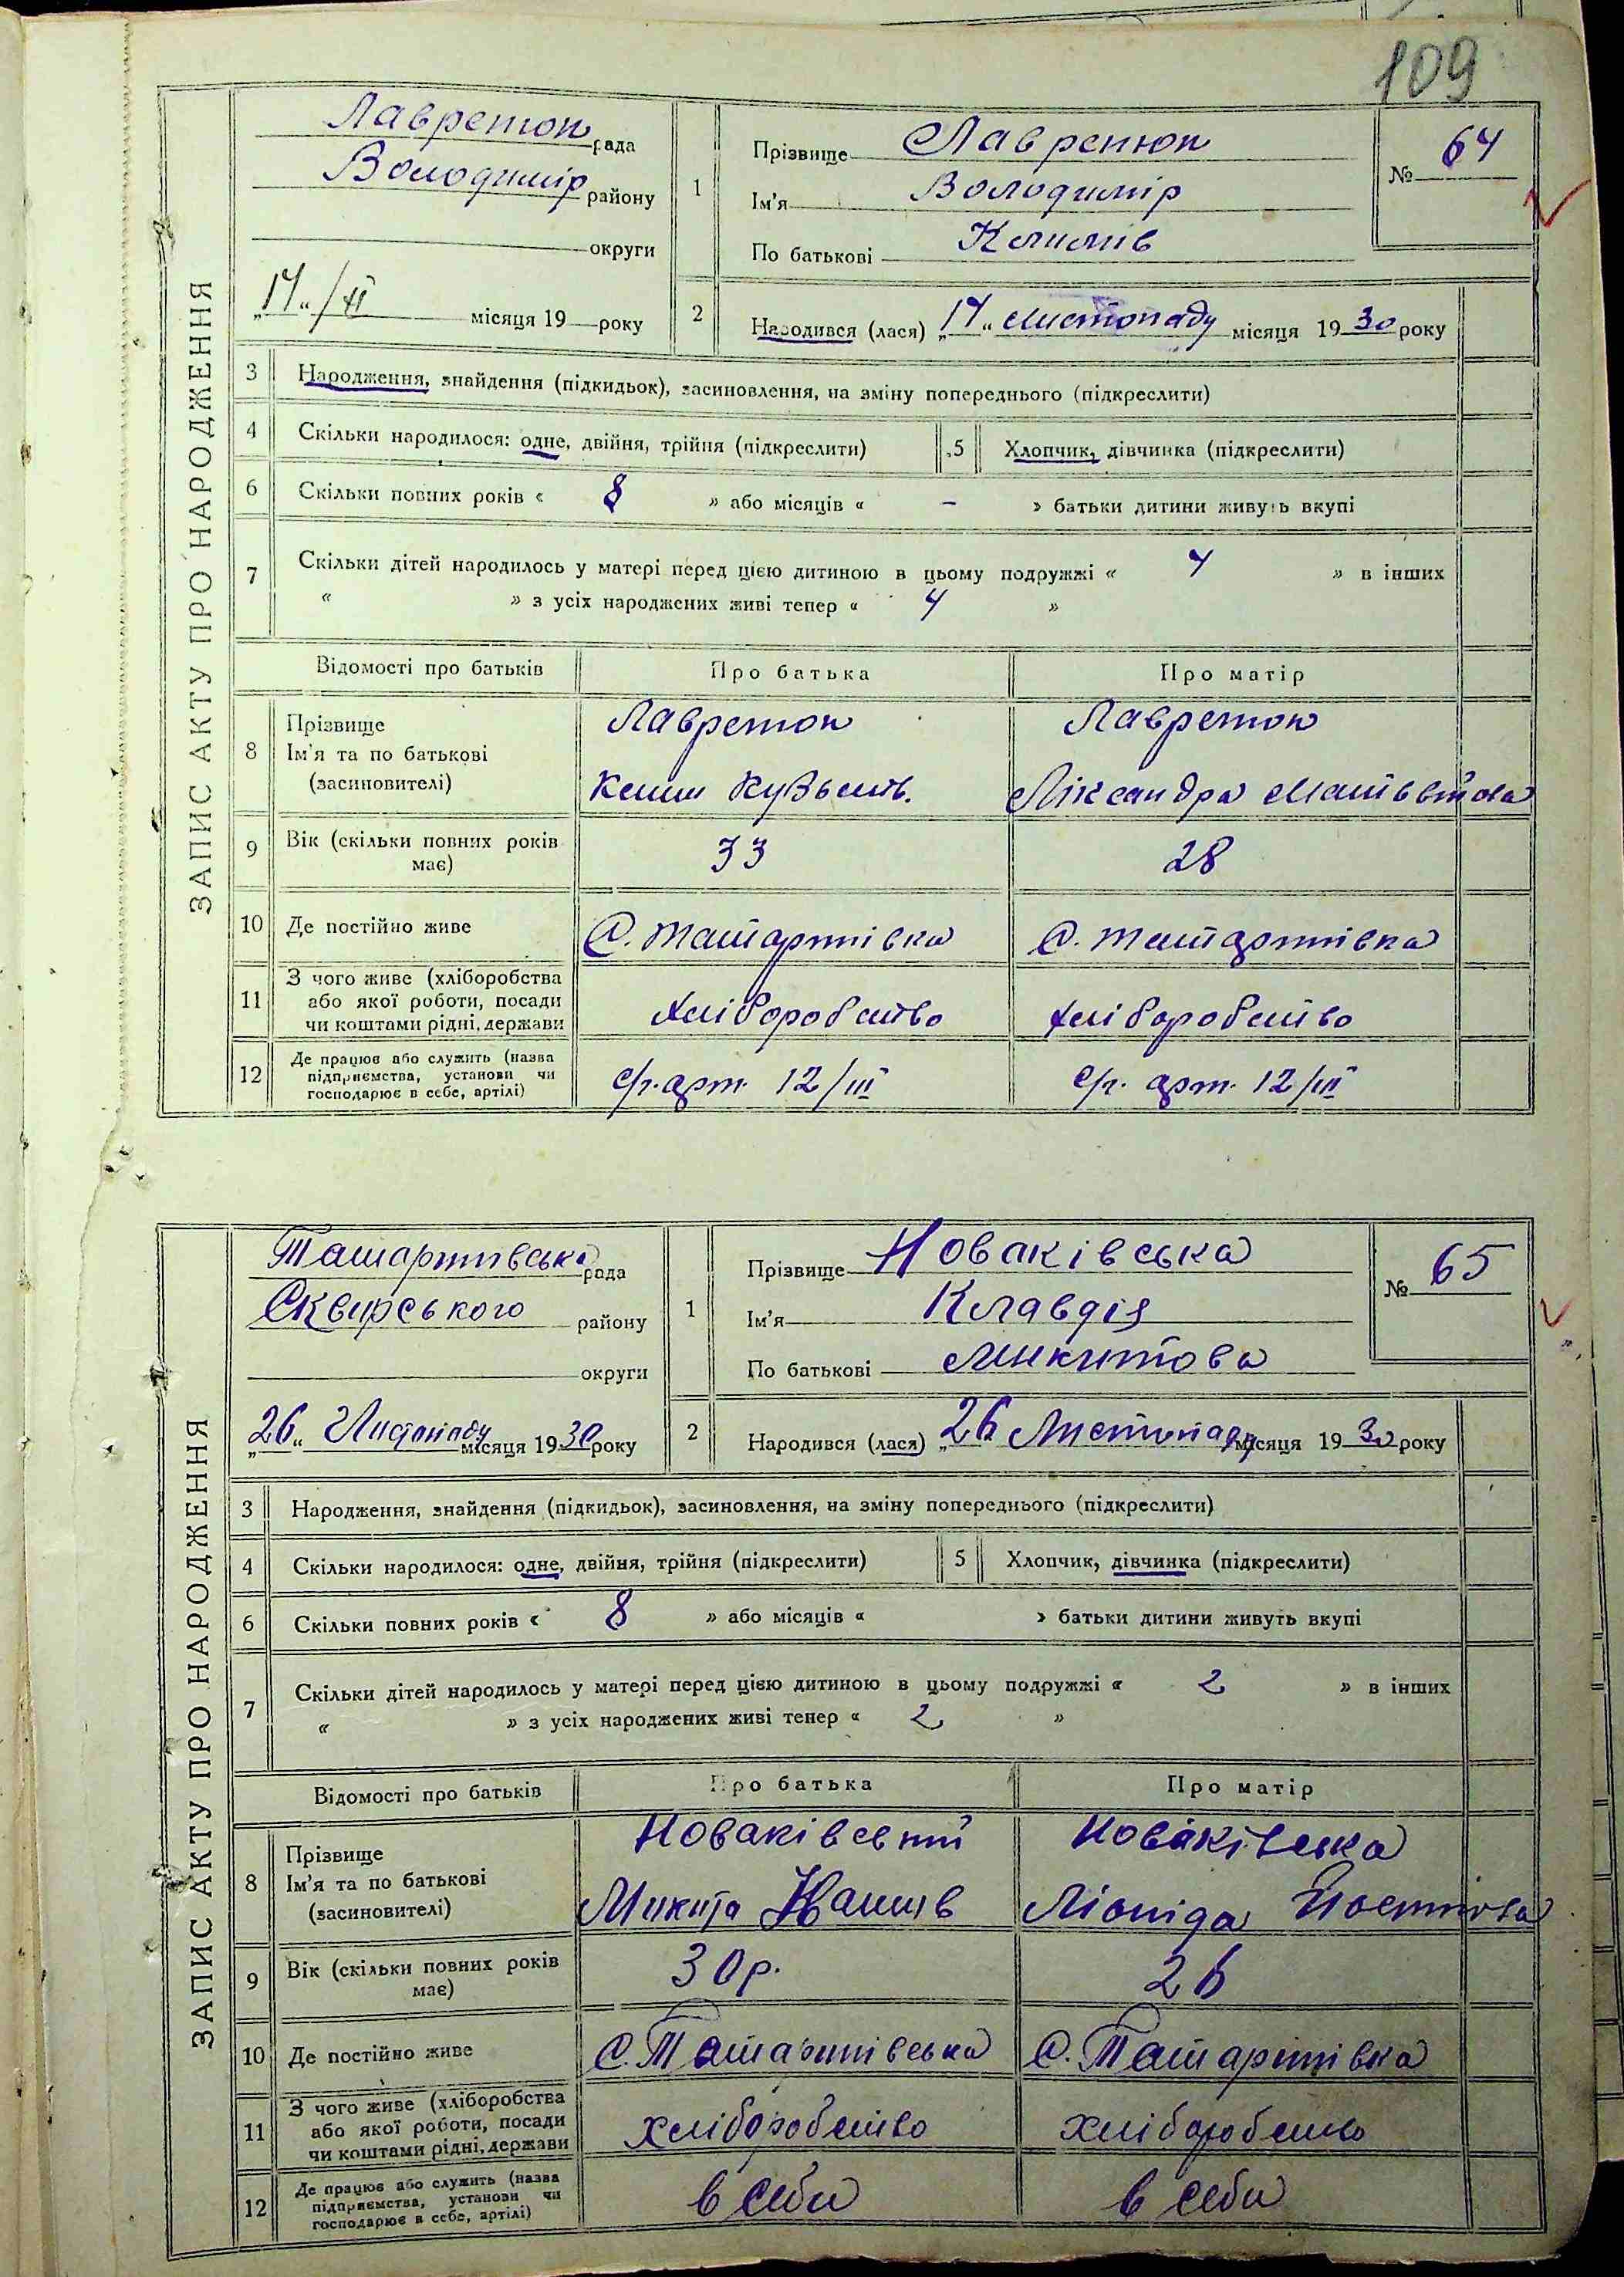 109
ЗАПИС АКТУ ПРО НАРОДЖЕННЯ
Лавретюк рада
Володимір району
округи
„14“ /XI місяця 19 року
1
Прізвище Лавренюк
Ім'я Володимір
По батькові Климів
№ 64
2
Народився (лася) „14“ листопаду місяця 1930 року
3 Народження, знайдення (підкидьок), засиновлення, на зміну попереднього (підкреслити)
4 Скільки народилося: одне, двійня, трійня (підкреслити) 5 Хлопчик, дівчинка (підкреслити)
6 Скільки повних років « 8 » або місяців « – » батьки дитини живуть вкупі
7 Скільки дітей народилось у матері перед цією дитиною в цьому подружжі « 4 » в інших
« » з усіх народжених живі тепер « 4 »
Відомості про батьків Про батька Про матір
8 Прізвище
Ім'я та по батькові
(засиновителі)
Лавретюк
Клим Кузьмів.
Лавретюк
Лександра
9 Вік (скільки повних років
має)
33 28
10 Де постійно живе С. Таташртівка
11 З чого живе (хліборобства
або якої роботи, посади
чи коштами рідні, держави
хліборобство хліборобство
12 Де працює або служить (назва
підприємства, установи чи
господарює в себе, артілі)
с/г. арт. 12/III с/г. арт. 12/III
ЗАПИС АКТУ ПРО НАРОДЖЕННЯ
рада
Сквирського району
округи
„26“ Листопаду місяця 1930 року
1
Прізвище Новаківська
Ім'я Клавдія
По батькові Микитова
№ 65
2
Народився (лася) „26“ Листопаду місяця 1930 року
3 Народження, знайдення (підкидьок), засиновлення, на зміну попереднього (підкреслити)
4 Скільки народилося: одне, двійня, трійня (підкреслити) 5 Хлопчик, дівчинка (підкреслити)
6 Скільки повних років « 8 » або місяців « » батьки дитини живуть вкупі
7 Скільки дітей народилось у матері перед цією дитиною в цьому подружжі « 2 » в інших
« » з усіх народжених живі тепер « 2 »
Відомості про батьків Про батька Про матір
8 Прізвище
Ім'я та по батькові
(засиновителі)
Новаківський
Микита
Новаківська
Ліоніда
9 Вік (скільки повних років
має)
30 р. 26
10 Де постійно живе
11 З чого живе (хліборобства
або якої роботи, посади
чи коштами рідні, держави
хліборобство хліборобство
12 Де працює або служить (назва
підприємства, установи чи
господарює в себе, артілі)
в себи в себи